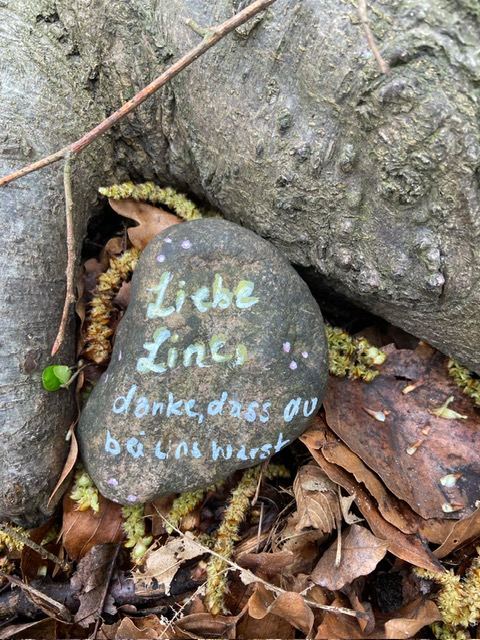 Liebe
Line,
danke, dass du
bei uns warst